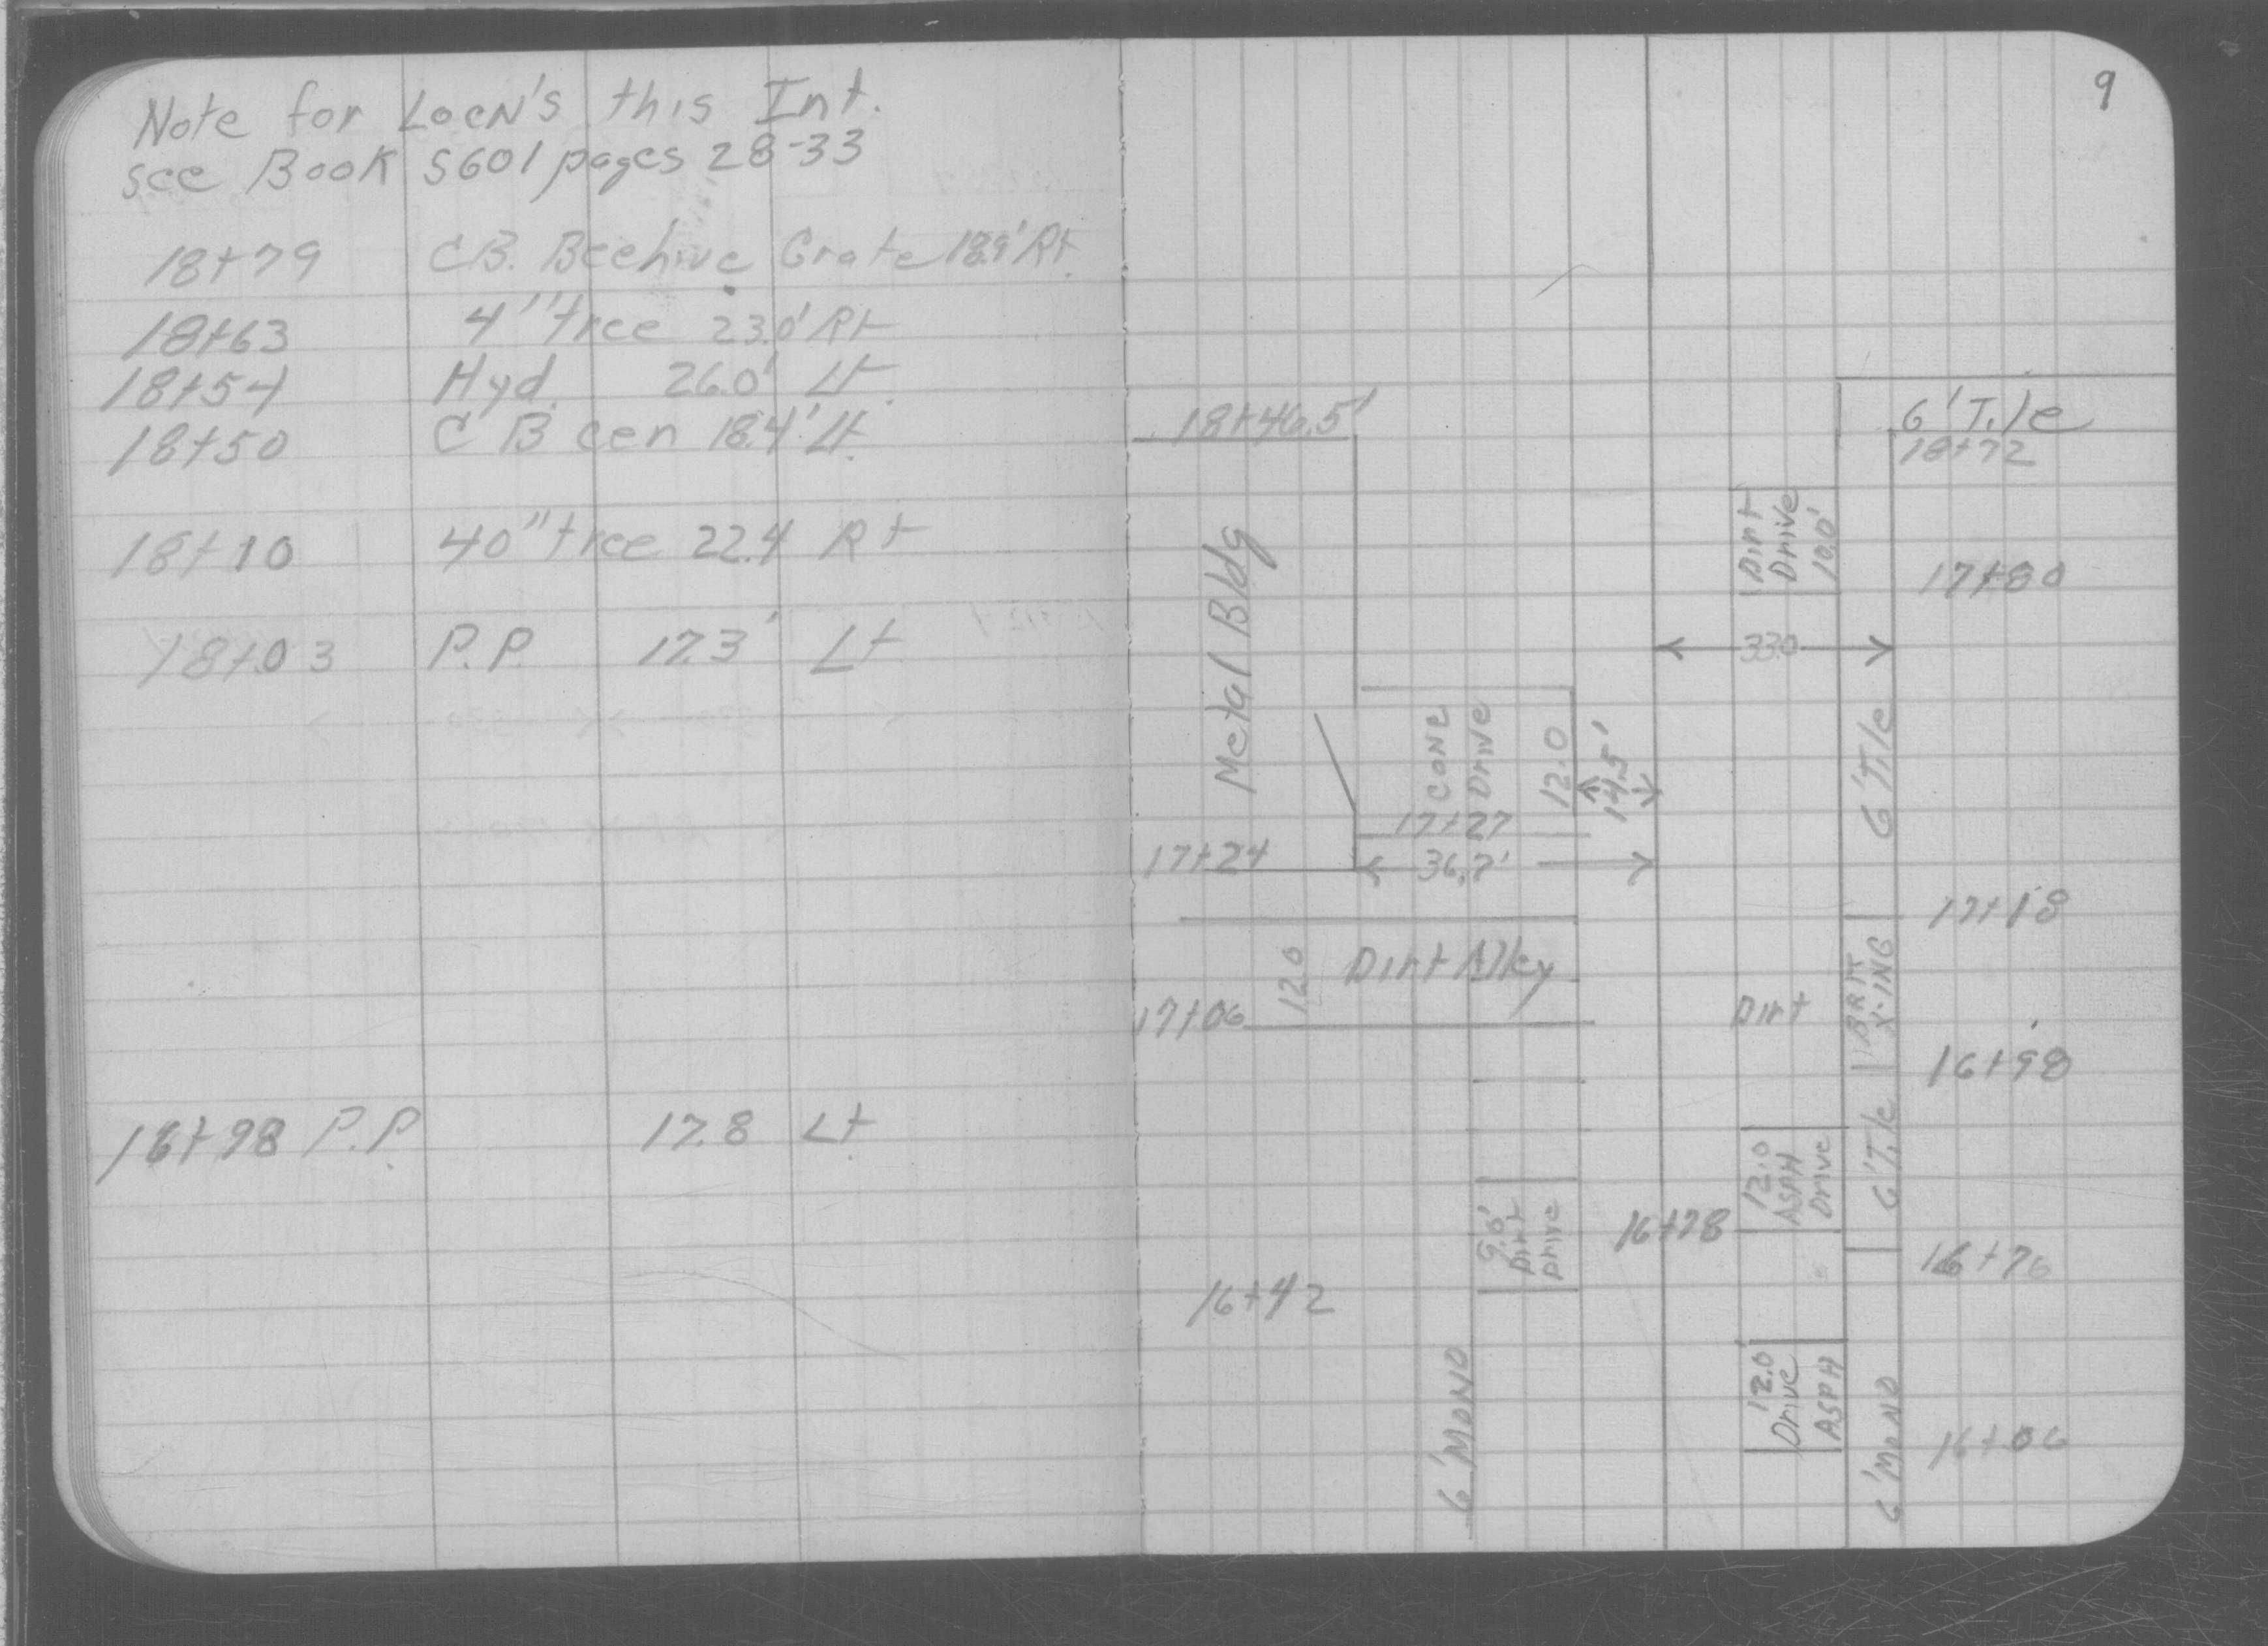 Note for LOCN'S this Int.
see Book 5601 pages 28-33
18+79 CB. Beehive Grate 18.9' Rt.
18+63 4" tree 23.0' Rt
18+54 Hyd. 26.0' Lt.
18+50 C B cen 18.4' Lt.
18+10 40" tree 22.4 Rt
18+03 P.P. 17.3' Lt
16+98 P.P. 17.8 Lt.
9
18+46.5'
6' Tile
18+72
Metal Bldg
Dirt
Drive
10.0'
17+80
33.0
CONC
Drive
12.0
14.5'
6' Tile
17+27
17+24
36.7'
17+18
12.0
Dirt Alley
BRK
X-ING
17+06
Dirt
16+98
6' Tile
12.0
ASPH
Drive
9.0'
Dirt
Drive
16+78
16+76
16+42
12.0'
Drive
ASPH
6' MONO
6' MONO
16+06